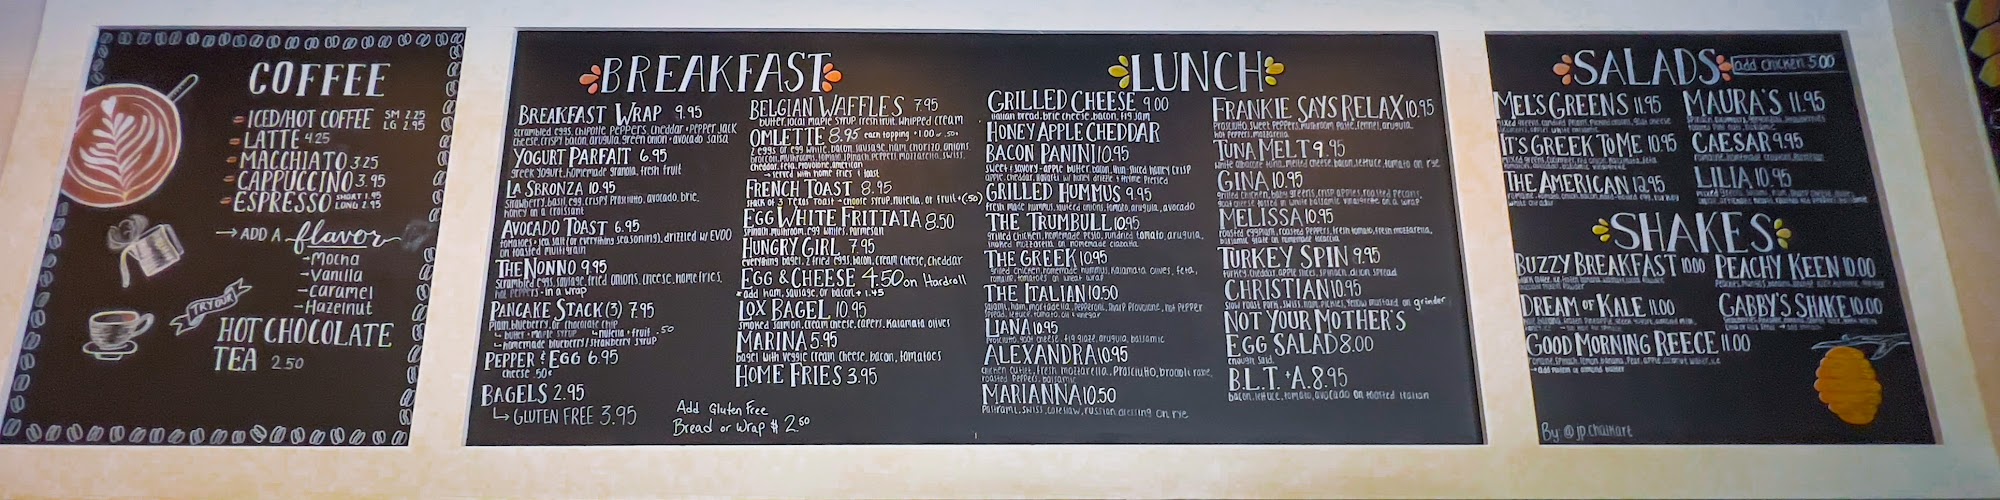 COFFEE
ICED/HOT COFFEE SM 2.25
LG 2.95
LATTE 4.25
MACCHIATO 3.25
CAPPUCCINO 3.95
ESPRESSO SHORT 1.95
LONG 2.95
→ ADD A flavor
- Mocha
- Vanilla
- Caramel
- Hazelnut
TRY OUR
HOT CHOCOLATE
TEA 2.50
BREAKFAST
BREAKFAST WRAP 9.95
scrambled eggs, chipotle peppers, cheddar + pepper jack
cheese, crispy bacon, arugula, green onion + avocado salsa
YOGURT PARFAIT 6.95
greek yogurt, homemade granola, fresh fruit
LA SBRONZA 10.95
strawberry, basil, egg, crispy prosciutto, avocado, brie,
honey on a croissant
AVOCADO TOAST 6.95
tomatoes + sea salt (or everything seasoning), drizzled w/ EVOO
on toasted multigrain
THE NONNO 9.95
scrambled eggs, sausage, fried onions, cheese, home fries,
hot peppers - in a wrap
PANCAKE STACK (3) 7.95
plain, blueberry, or chocolate chip
↳ butter + maple syrup ↳ nutella + fruit + .50
↳ homemade blueberry/ strawberry syrup
PEPPER & EGG 6.95
cheese .50¢
BAGELS 2.95
↳ GLUTEN FREE 3.95
BELGIAN WAFFLES 7.95
butter, local maple syrup, fresh fruit, whipped cream
OMLETTE 8.95 each topping + 1.00 or .50+
2 eggs or egg white, bacon, sausage, ham, chorizo, onions,
broccoli, mushrooms, tomato, spinach, peppers, mozzarella, swiss,
cheddar, feta, provolone, american
→ served with home fries + toast
FRENCH TOAST 8.95
stack of 3 Texas toast → choose syrup, nutella, or fruit + (.50)
EGG WHITE FRITTATA 8.50
spinach, mushroom, egg whites, parmesan
HUNGRY GIRL 7.95
everything bagel, 2 fried eggs, bacon, cream cheese, cheddar
EGG & CHEESE 4.50 on Hardroll
* add ham, sausage, or bacon + 1.45
LOX BAGEL 10.95
smoked salmon, cream cheese, capers, kalamata olives
MARINA 5.95
bagel with veggie cream cheese, bacon, tomatoes
HOME FRIES 3.95
Add Gluten Free
Bread or Wrap $ 2.50
LUNCH
GRILLED CHEESE 9.00
italian bread, brie cheese, bacon, fig jam
HONEY APPLE CHEDDAR
BACON PANINI 10.95
sweet + savory - apple butter, bacon, thin-sliced honey crisp
apple, cheddar, havarti w/ honey drizzle + thyme pressed
GRILLED HUMMUS 9.95
fresh made hummus, sauteed onions, tomato, arugula, avocado
THE TRUMBULL 10.95
grilled chicken, homemade pesto, sundried tomato, arugula,
smoked mozzarella on homemade ciabatta
THE GREEK 10.95
grilled chicken, homemade hummus, kalamata olives, feta,
romaine, tomatoes on wrap
THE ITALIAN 10.50
salami, ham, mortadella, pepperoni, sharp provolone, hot pepper
spread, lettuce, tomato, oil + vinegar
LIANA 10.95
prosciutto, goat cheese, fig glaze, arugula, balsamic
ALEXANDRA 10.95
chicken cutlet, fresh mozzarella, prosciutto, broccoli rabe,
roasted peppers, balsamic
MARIANNA 10.50
pastrami, swiss, coleslaw, russian dressing on rye
FRANKIE SAYS RELAX 10.95
prosciutto, sweet peppers, mushroom paste, fennel, arugula,
hot peppers, mozzarella
TUNA MELT 9.95
white albacore tuna, melted cheese, bacon, lettuce, tomato on rye
GINA 10.95
grilled chicken, baby greens, crisp apples, roasted pecans,
goat cheese tossed in white balsamic vinaigrette on a wrap
MELISSA 10.95
roasted eggplant, roasted peppers, fresh tomato, fresh mozzarella,
balsamic glaze on homemade focaccia
TURKEY SPIN 9.95
turkey, cheddar, apple slices, spinach, dijon spread
CHRISTIAN 10.95
slow roast pork, swiss, ham, pickles, yellow mustard on grinder
NOT YOUR MOTHER'S
EGG SALAD 8.00
enough said.
B.L.T. +A. 8.95
bacon, lettuce, tomato, avocado on toasted italian
SALADS add chicken 5.00
MEL'S GREENS 11.95
IT'S GREEK TO ME 10.95
THE AMERICAN 12.95
MAURA'S 11.95
CAESAR 9.95
LILIA 10.95
SHAKES
BUZZY BREAKFAST 10.00
DREAM OF KALE 11.00
GOOD MORNING REECE 11.00
PEACHY KEEN 10.00
GABBY'S SHAKE 10.00
By: @jp.chalkart